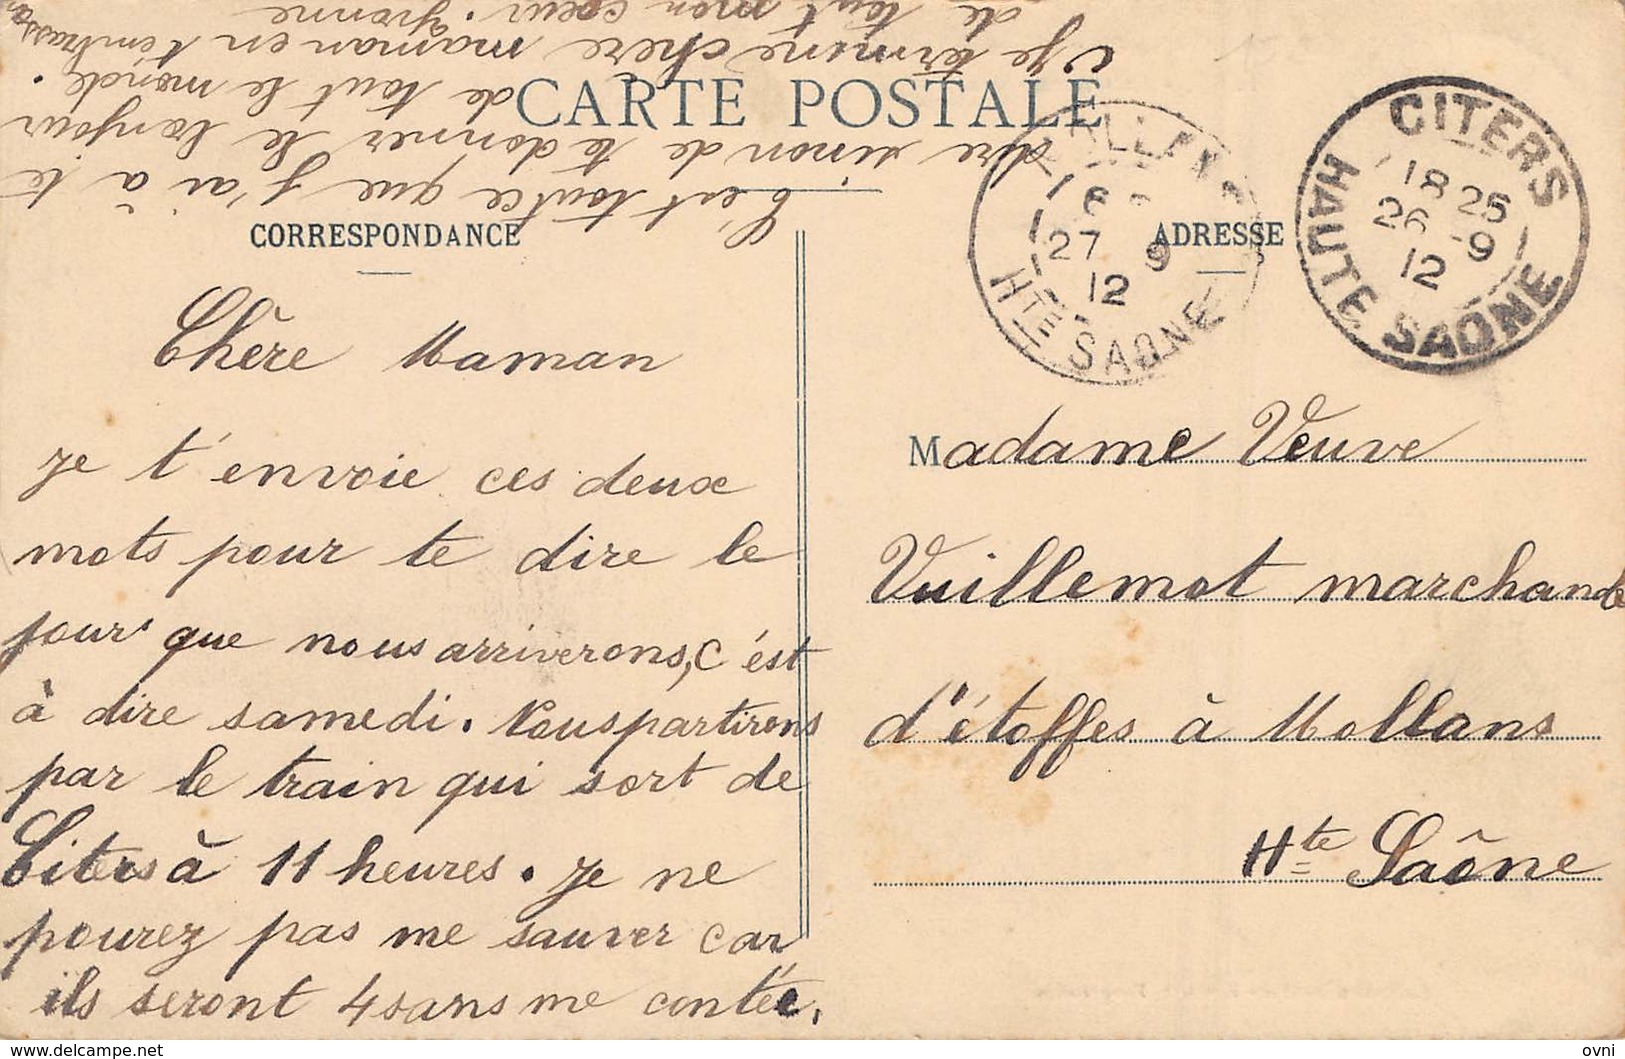 CARTE POSTALE
CORRESPONDANCE
ADRESSE
Chère Maman
je t'envoie ces deux
mots pour te dire le
jour que nous arriverons, c'est
à dire samedi. Nous partirons
par le train qui sort de
Citers à 11 heures. je ne
pourez pas me sauver car
ils seront 4 sans me contée.
C'est toutce que j'ai à te
dire sinon de te donner le bonjour
de tout le monde.
Je termine chere maman en t'embrass
de tout mon coeur. Yvonne
CITERS
18 25
26 -9
12
HAUTE SAÔNE
6
27 9
12
Hte SAONE
Madame Veuve
Vuillemot marchande
d'étoffes à Mollans
Hte Saône
www.delcampe.net
ovni